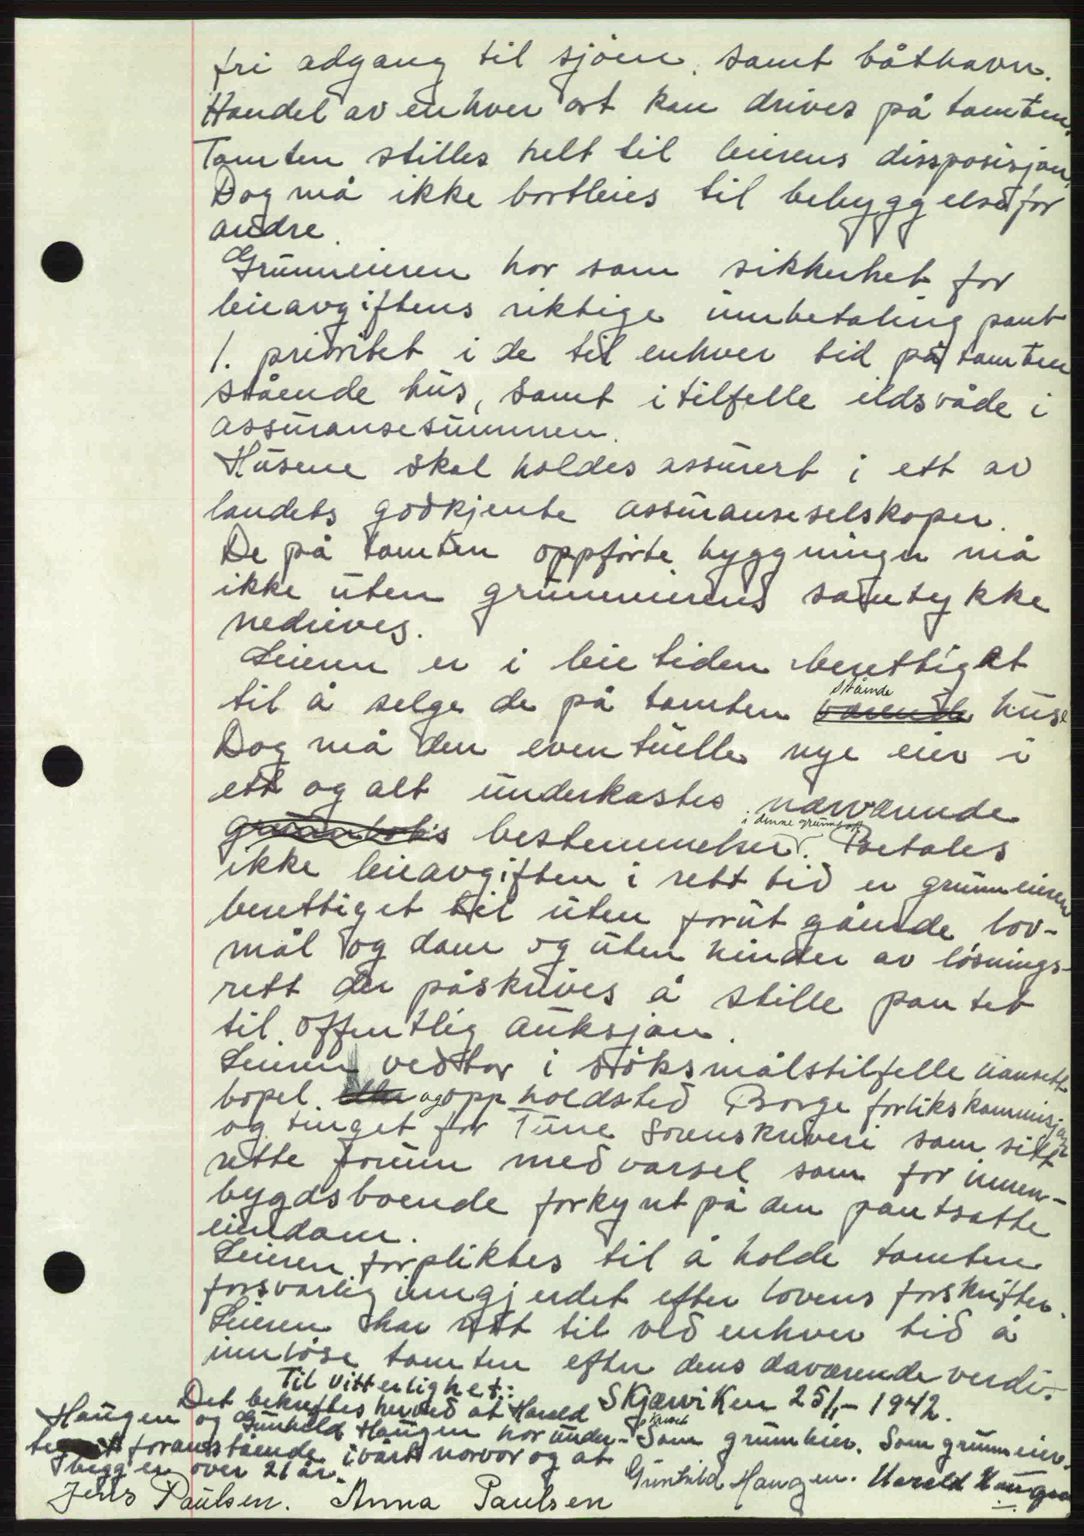 fri adgang til sjöen, samt båthavn.
Handel av enhver art kan drives på tomten.
Tomten stilles helt til leierens dissposisjon,
Dog må ikke bortleies til bebyggelse for
andre.
Grunneieren har som sikkerhet for
leieavgiftens riktige innbetaling pant
1. prioritet i de til enhver tid på tomten
stående hus, samt i tilfelle ildsvåde i
assuransesummen.
Husene skal holdes assurert i ett av
landets godkjente assuranseselskaper.
De på tomten oppförte byggninger må
ikke uten grunneierens samtykke
nedrives.
Leieren er i leietiden berettiget
til å selge de på tomten stående huse
Dog må den eventuelle nye eier i
ett og alt underkastes nærværende
bestemmelser i denne grunnbok. Betales
ikke leieavgiften i rett tid er grunneieren
berettiget til uten forutgående lov-
mål og dom og uten hinder av lösnings-
rett der påskrives å stille pantet
til offentlig auksjon.
Leieren vedtar i söksmålstilfelle uansett
bopel og oppholdsted Borge forlikskommisjon
og tinget for Tune Sorenskriveri som sitt
rette forum med varsel som for innen-
bygdsboende forkynt på den pantsatte
eiendom.
Leieren forpliktes til å holde tomten
forsvarlig inngjerdet efter lovens forskrifter.
Leieren har rett til ved enhver tid å
innlöse tomten efter dens daværende verdi.
Til Vitterlighet:
Skjærviken 25/1 - 1942.
Det bekreftes herved at Harald
Haugen og Gunhild Haugen har under-
tegnet foranstående i vårt nærvær og at
begge er over 21 år.
Som grunneier. Som grunneier.
Gunhild Haugen. Harald Haugen
Jens Paulsen. Anna Paulsen